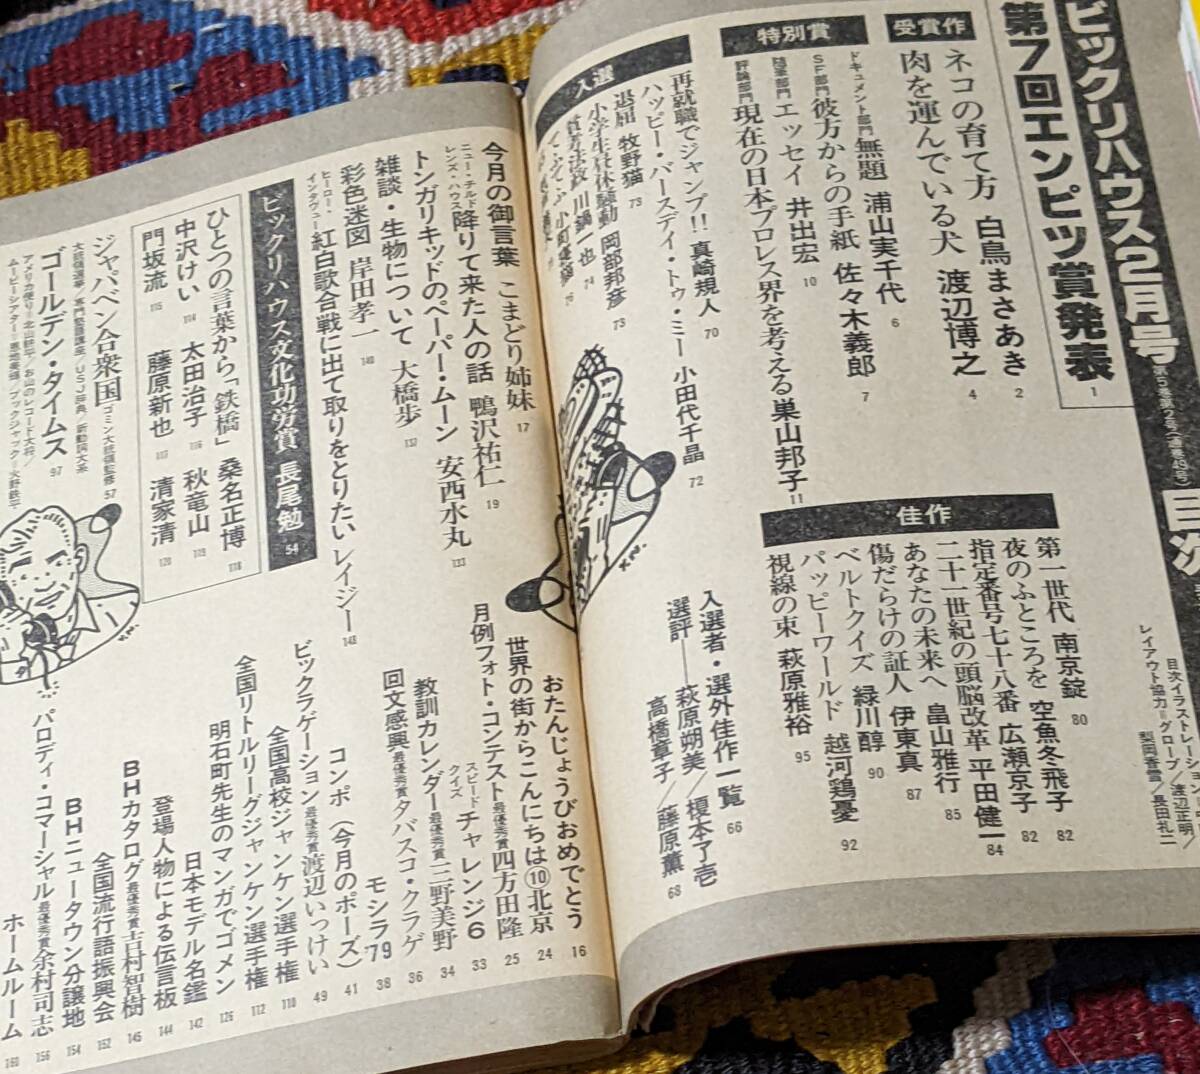 ビックリハウス2月号
第5巻第2号(通巻49号)
目次
第7回エンピツ賞発表 1
目次イラストレーション
レイアウト協力=グループ/渡辺正明/
梨岡香雪/長田礼二
受賞作
ネコの育て方 白鳥まさあき 2
肉を運んでいる犬 渡辺博之 4
特別賞
ドキュメント部門 無題 浦山実千代 6
SF部門 彼方からの手紙 佐々木義郎 7
随筆部門 エッセイ 井出宏 10
評論部門 現在の日本プロレス界を考える 巣山邦子 11
入選
再就職でジャンプ!! 真崎規人 70
ハッピー・バースデイ・トゥ・ミー 小田代千晶 72
退屈 牧野猫 73
小学生昼休騒動 岡部邦彦 73
川鍋一也 74
76
佳作
第一世代 南京錠 80
夜のふところを 空魚冬飛子 82
指定番号七十八番 広瀬京子 82
二十一世紀の頭脳改革 平田健一 84
あなたの未来へ 畠山雅行 85
傷だらけの証人 伊東真 87
ベルトクイズ 緑川醇 90
パッピーワールド 越河鶏憂 92
視線の束 萩原雅裕 95
入選者・選外佳作一覧 66
選評──萩原朔美/榎本了壱
高橋章子/藤原薫 68
今月の御言葉 こまどり姉妹 17
ニュー・チルドレンズ・ハウス 降りて来た人の話 鴨沢祐仁 19
トンガリキッドのペーパー・ムーン 安西水丸 133
雑談・生物について 大橋歩 132
彩色迷図 岸田孝一 140
ヒーロー・インタヴュー 紅白歌合戦に出て取りをとりたい レイジー 143
ビックリハウス文化功労賞 長尾勉 54
ひとつの言葉から「鉄橋」 桑名正博 118
中沢けい 114 太田治子 116 秋竜山 119
門坂流 115 藤原新也 117 清家清 120
ジャパベン合衆国 ゴミン大統領監修 57
大統領選挙/専門塾講座/USJ辞典/新動詞大系
ゴールデン・タイムス 97
アメリカ便り=北山耕平/お山のレコード大将/
ムービーシアター=恩地美畑/ブックジャック=矢野鉄平
おたんじょうびおめでとう 16
世界の街からこんにちは⑩北京 24
月例フォト・コンテスト 最優秀賞 四方田隆 25
スピードクイズ チャレンジ6 33
教訓カレンダー 最優秀賞 三野美野 34
回文感興 最優秀賞 タバスコ・クラゲ 36
モシラ79 38
コンポ(今月のポーズ) 41
ビックラゲーション 最優秀賞 渡辺いっけい 49
全国高校ジャンケン選手権 110
全国リトルリーグジャンケン選手権 112
明石町先生のマンガでゴメン 126
日本モデル名鑑 142
登場人物による伝言板 144
BHカタログ 最優秀賞 吉村智樹 145
全国流行語振興会 152
BHニュータウン分譲地 154
パロディ・コマーシャル 最優秀賞 余村司志 156
ホームルーム 160
K.N.
K.N.